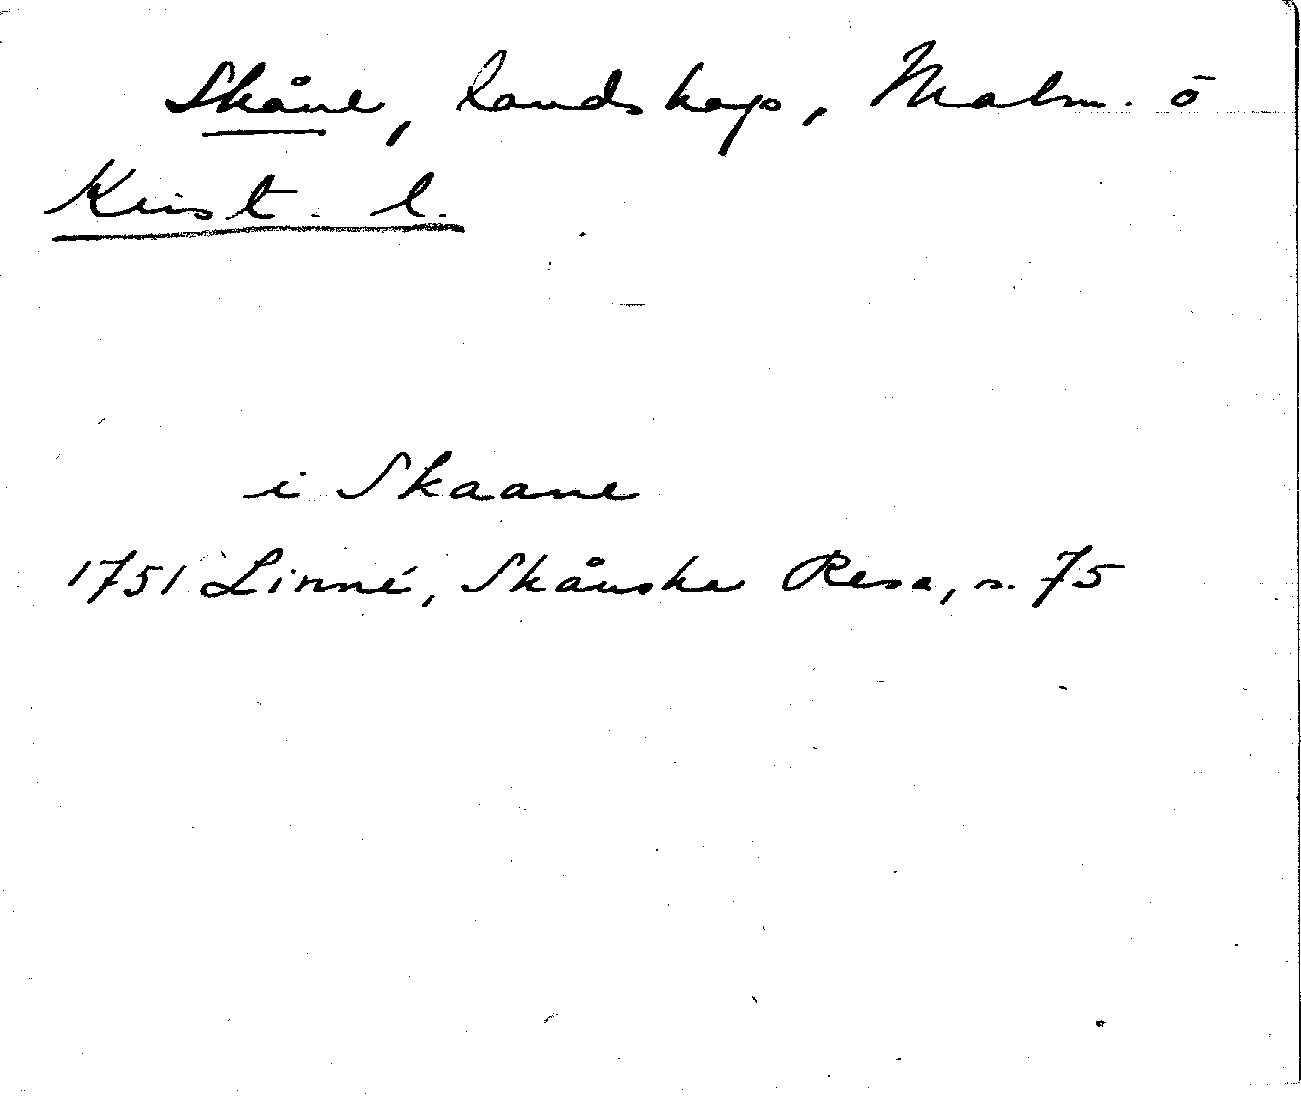 Skåne, landskap, Malm. ō
Krist. l.
i Skaane
1751 Linné, Skånska Resa, s. 75